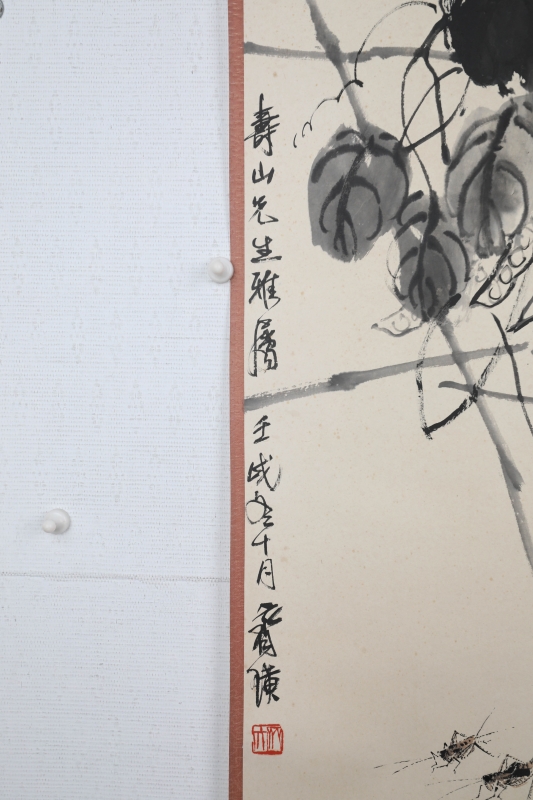 壽山先生雅屬 壬戌冬十月 齊璜